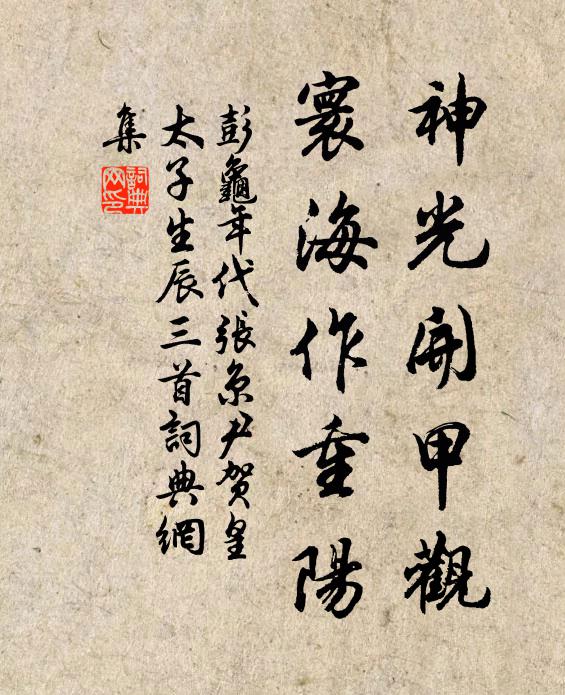 神光開甲觀
寰海作重陽
彭龜年代張京尹賀皇
太子生辰三首詞典網
集
詞典
网印